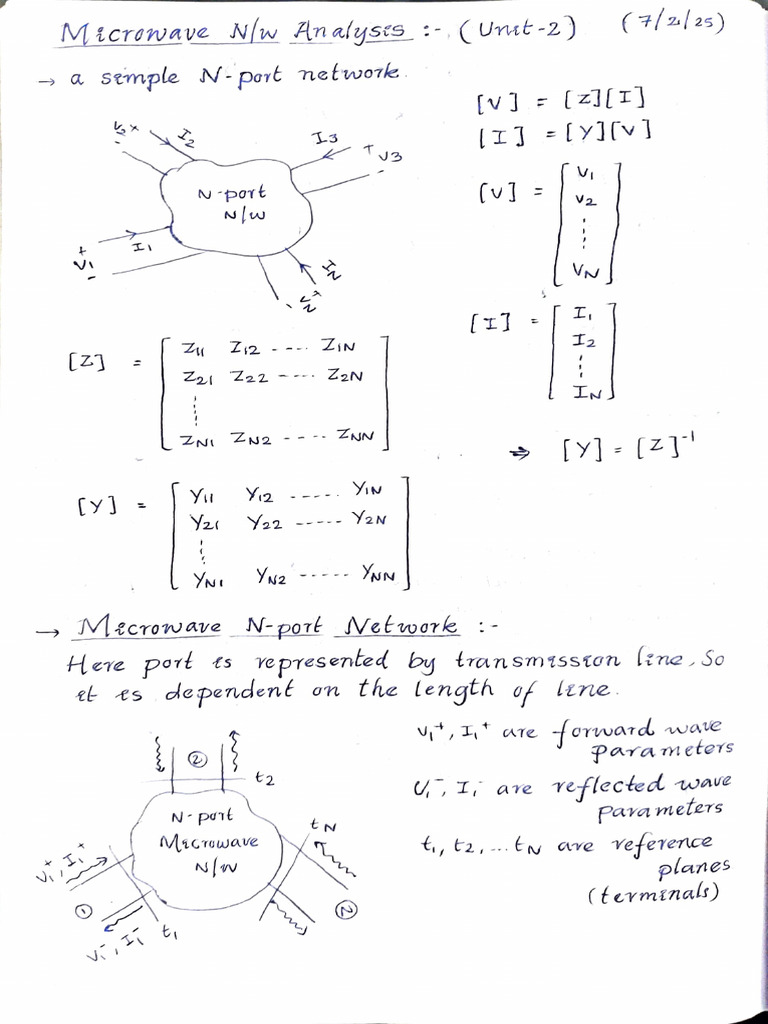 Microwave N/w Analysis :- (Unit-2) (7/2/25)
→ a simple N-port network.
[V] = [Z][I]
[I] = [Y][V]
V2 + - I2
I3 + V3 -
N-port
N/W
+ V1 - I1
IN
+ VN -
[V] = [ V1
V2
⋮
VN ]
[I] = [ I1
I2
⋮
IN ]
[Z] = [ Z11 Z12 ---- Z1N
Z21 Z22 ---- Z2N
⋮
ZN1 ZN2 ---- ZNN ]
⇒ [Y] = [Z]⁻¹
[Y] = [ Y11 Y12 ------ Y1N
Y21 Y22 ----- Y2N
⋮
YN1 YN2 ----- YNN ]
→ Microwave N-port Network :-
Here port is represented by transmission line. So
it is dependent on the length of line.
② t2
N-port
Microwave
N/W
tN
V1⁺, I1⁺
①
V1⁻, I1⁻ t1
②
V1⁺, I1⁺ are forward wave
parameters
V1⁻, I1⁻ are reflected wave
parameters
t1, t2, ... tN are reference
planes
(terminals)